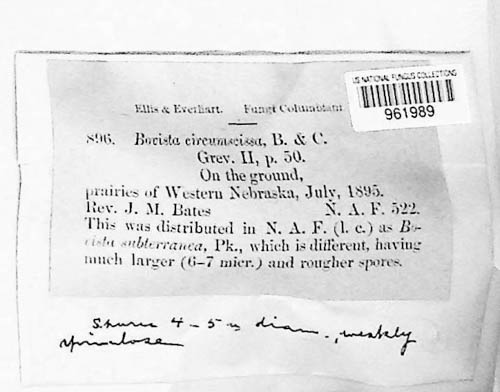 US NATIONAL FUNGUS COLLECTIONS
961989
Ellis & Everhart. Fungi Columbiani
896. Bovista circumscissa, B. & C.
Grev. II, p. 50.
On the ground,
prairies of Western Nebraska, July, 1895.
Rev. J. M. Bates N. A. F. 522.
This was distributed in N. A. F. (l. c.) as Bo-
vista subterranea, Pk., which is different, having
much larger (6–7 micr.) and rougher spores.
Spores 4 - 5 u diam., weakly
spinulose